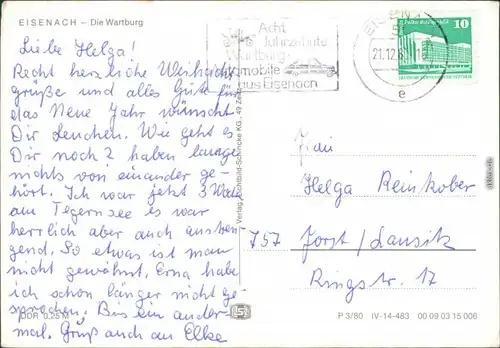 EISENACH – Die Wartburg
Liebe Helga!
Recht herzliche Weihnachts
grüße und alles Gute für
das Neue Jahr wünscht
Dir Lenchen. Wie geht es
Dir noch? haben lange
nichts von einander ge-
hört. Ich war jetzt 3 Woch
am Tegernsee es war
herrlich aber auch anstren-
gend. So etwas ist man
nicht gewöhnt. Erna habe
ich schon länger nicht ge-
sprochen. Bis ein ander-
mal. Gruß auch an Elke
DDR 0,25 M
Acht
Jahrzehnte
Wartburg-
Automobile
aus Eisenach
21.12.
e
10
Verlag
KG., 49 Zeitz
Frau
Helga Reinkober
757 Forst/Lausitz
Ringstr. 17
P 3/80 IV-14-483 00 09 03 15 006